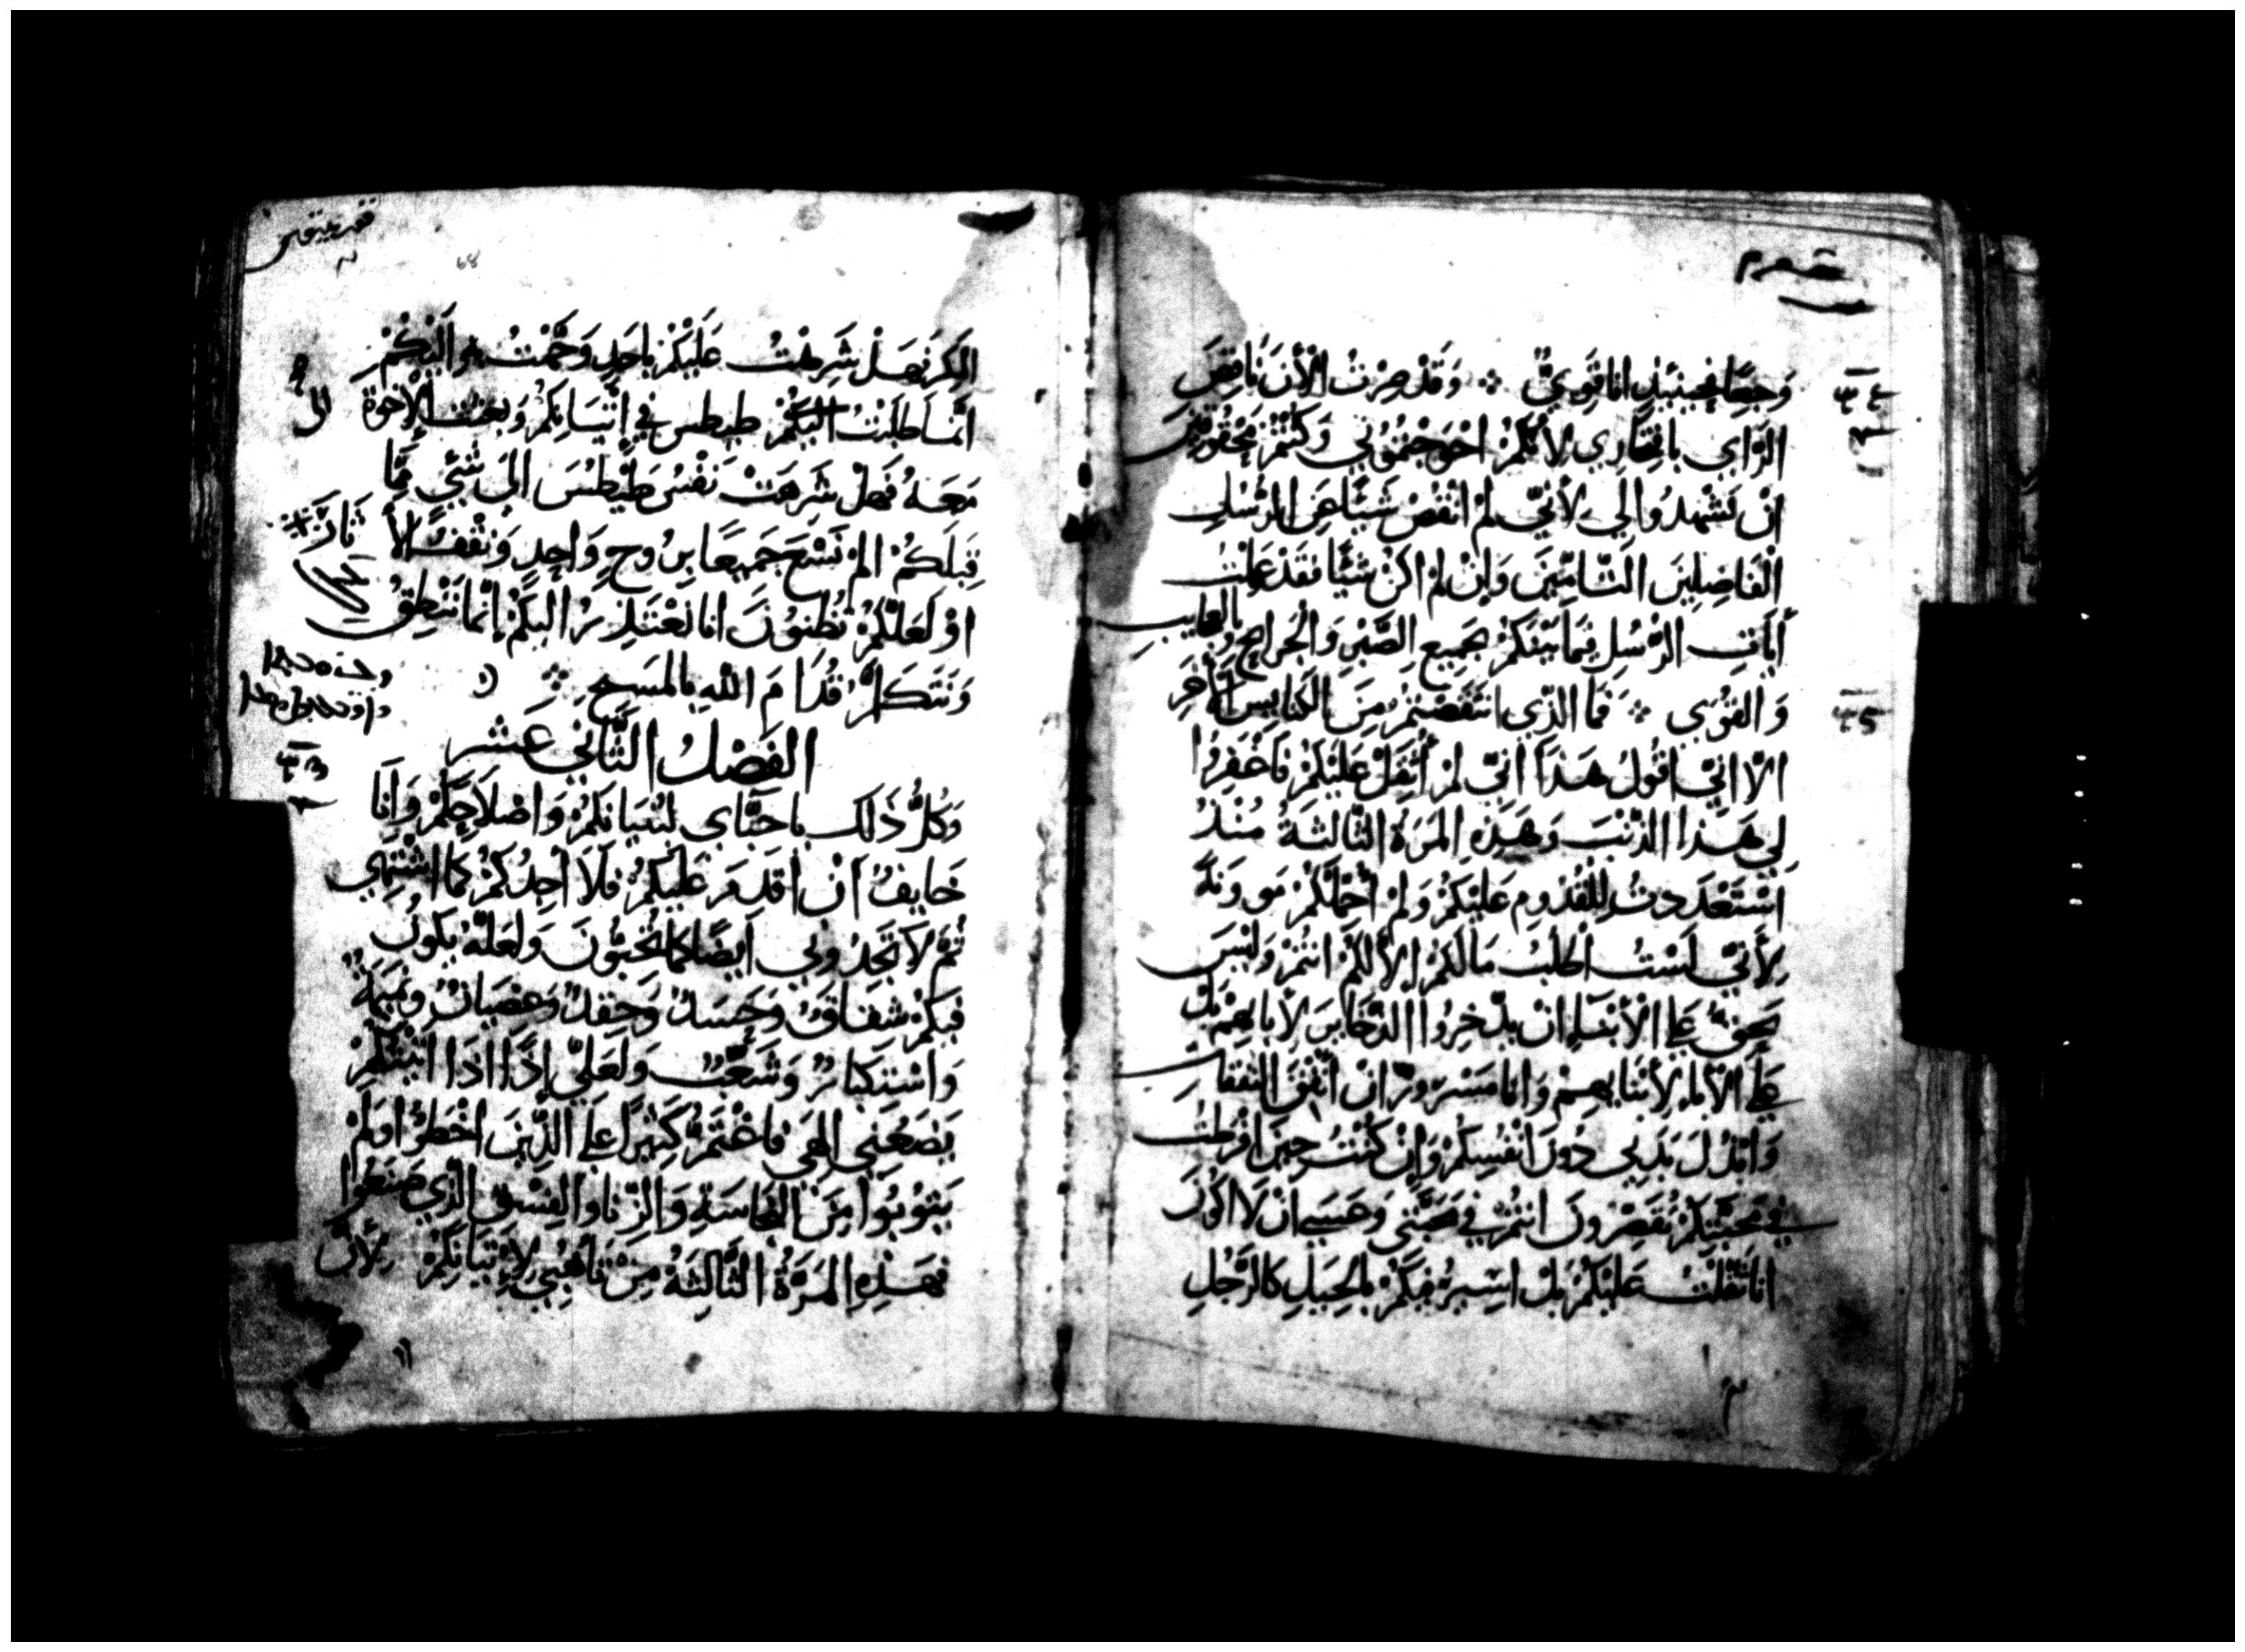 وَجِعًا فَحِينَئِذٍ انا قَوِيٌّ ܀ وَقَدْ صِرْتُ الْأَنَ نَاقِصَ
الرَّايِ بافتِخَارِي لِأَنَّكُمْ احْوَجْتُمُونِي وَكُنْتُمْ مَحْقُوقِينَ
انْ تَشْهَدُوا لِي لِأَنِّي لمْ انْقُصْ شَيًّا عَنِ المُرْسَلِينَ
الْفَاضِلِينَ التَّامِّينَ وَإِنْ لمْ اكنْ شَيًّا فَقَدْ عَمِلْتُ
أَيَاتِ الرُّسُلِ فِيمَا بَيْنَكُمْ بِجَمِيعِ الصَّبْرِ وَالجَرَايحِ وَبالعجايبِ
وَالقُوَى ܀ فَمَا الَّذِي انتَقَصْتُمْ مِنَ الكنَايِسِ الْأُخَرِ
الّا انِّي اقُولُ هَذَا انِّي لمْ أُثَقِّلْ عَلَيْكُمْ فَاغْفِرُوا
لِي هَذا الذَّنْبَ وَهَذِهِ المَرَةُ الثَّالثَةُ مُنْذُ
اسْتَعْدَدتُ لِلْقُدُومِ عَلَيْكُمْ وَلمْ أُحَمِّلْكُمْ مَوونَةً
لِأَنِّي لَسْتُ اطْلبُ مَا لَكُمْ الّا لَكُمْ انتُمْ وَلَيْسَ
بحَقٍّ علَى الْأَبْنَاءِ انْ يَدَّخِرُوا الذَّخَايرَ لِأَبايهِمْ بَلْ
علَى الْأباءِ لِأَبْنَايهِمْ وَانا مَسْرُورٌ انْ انْفِقَ النفقاتِ
وَابْذُلَ بَدَنِي دُونَ انْفُسِكُمْ وَإنْ كُنْتُ حِينَ افْرَطْتُ
فِي مَحَبَّتِكُمْ تُقَصِّرُونَ انتُمْ فِي مَحَبَّتِي وَعَسَى انْ لَا اكُونَ
انا ثَقَلْتُ عَلَيْكُمْ بَلْ اسِيرُ فِيكُمْ بِالحِيَلِ كالرَّجُلِ
68
فَهَلْ شَرِهْتُ عَلَيْكُمْ باحَدٍ وَجَّهْتُ بهِ الَيْكُمْ
انَّمَا طَلَبْتُ الَيْكُمْ طيطس فِي اتْيَانِكُمْ وَبعَثتُ الْأخوَةَ
مَعَهُ فَهَلْ شَرِهَتْ نَفْسُ طِيْطُسَ الَى شَيْءٍ مِّمَا
قِبَلَكُمْ المْ نَسْعَ جَمِيعًا بِرُوحٍ وَاحِدٍ وَنَقْفُ الْأ ثَارَ
اوْ لَعَلَّكُمْ تَظُنُّونَ انا نَعْتَذِرُ الَيْكُمْ انَّمَا نَنْطِقُ
وَنَتَكَلَّمُ قُدَامَ اللَّهِ بِالمَسِيحِ ܀
الفَصْلُ الثَّانِي عَشَر
وَكُلُّ ذَلكَ يا حبَّاي لبُنيَانِكُمْ وَاصْلَاحِكُمْ وَانَا
خَايفٌ انْ اقدَمَ عَلَيْكُمْ فَلَا أَجِدُكُمْ كما اشْتَهِي
ثُمَّ لَا تَجِدُونِي ايضًا كما تُحِبُّونَ وَلَعَلَّهُ يَكونُ
فيكُمْ شِقَاقٌ وَحَسَدٌ وَحِقدٌ وَعِصيَانٌ وَنَمِيمَةٌ
وَاسْتِكبَارٌ وَشَغَبٌ وَلَعَلِّي إِذًا اذَا اتَيْتُكُمْ
يَضَعُنِي الهِي فاغْتَمُّ كَثِيرًا علَى الَّذِينَ اخْطَوُا وَلَمْ
يَتُوبُوا مِنَ النَّجَاسَةِ وَالزِّنا وَالفِسْقِ الَّذِي صَنَعُوا
فَهَذِهِ المَرَّةُ الثَّالِثَةُ مِنْ تَأَهُّبِي لِأتْيَانِكُمْ لِأَنَّ